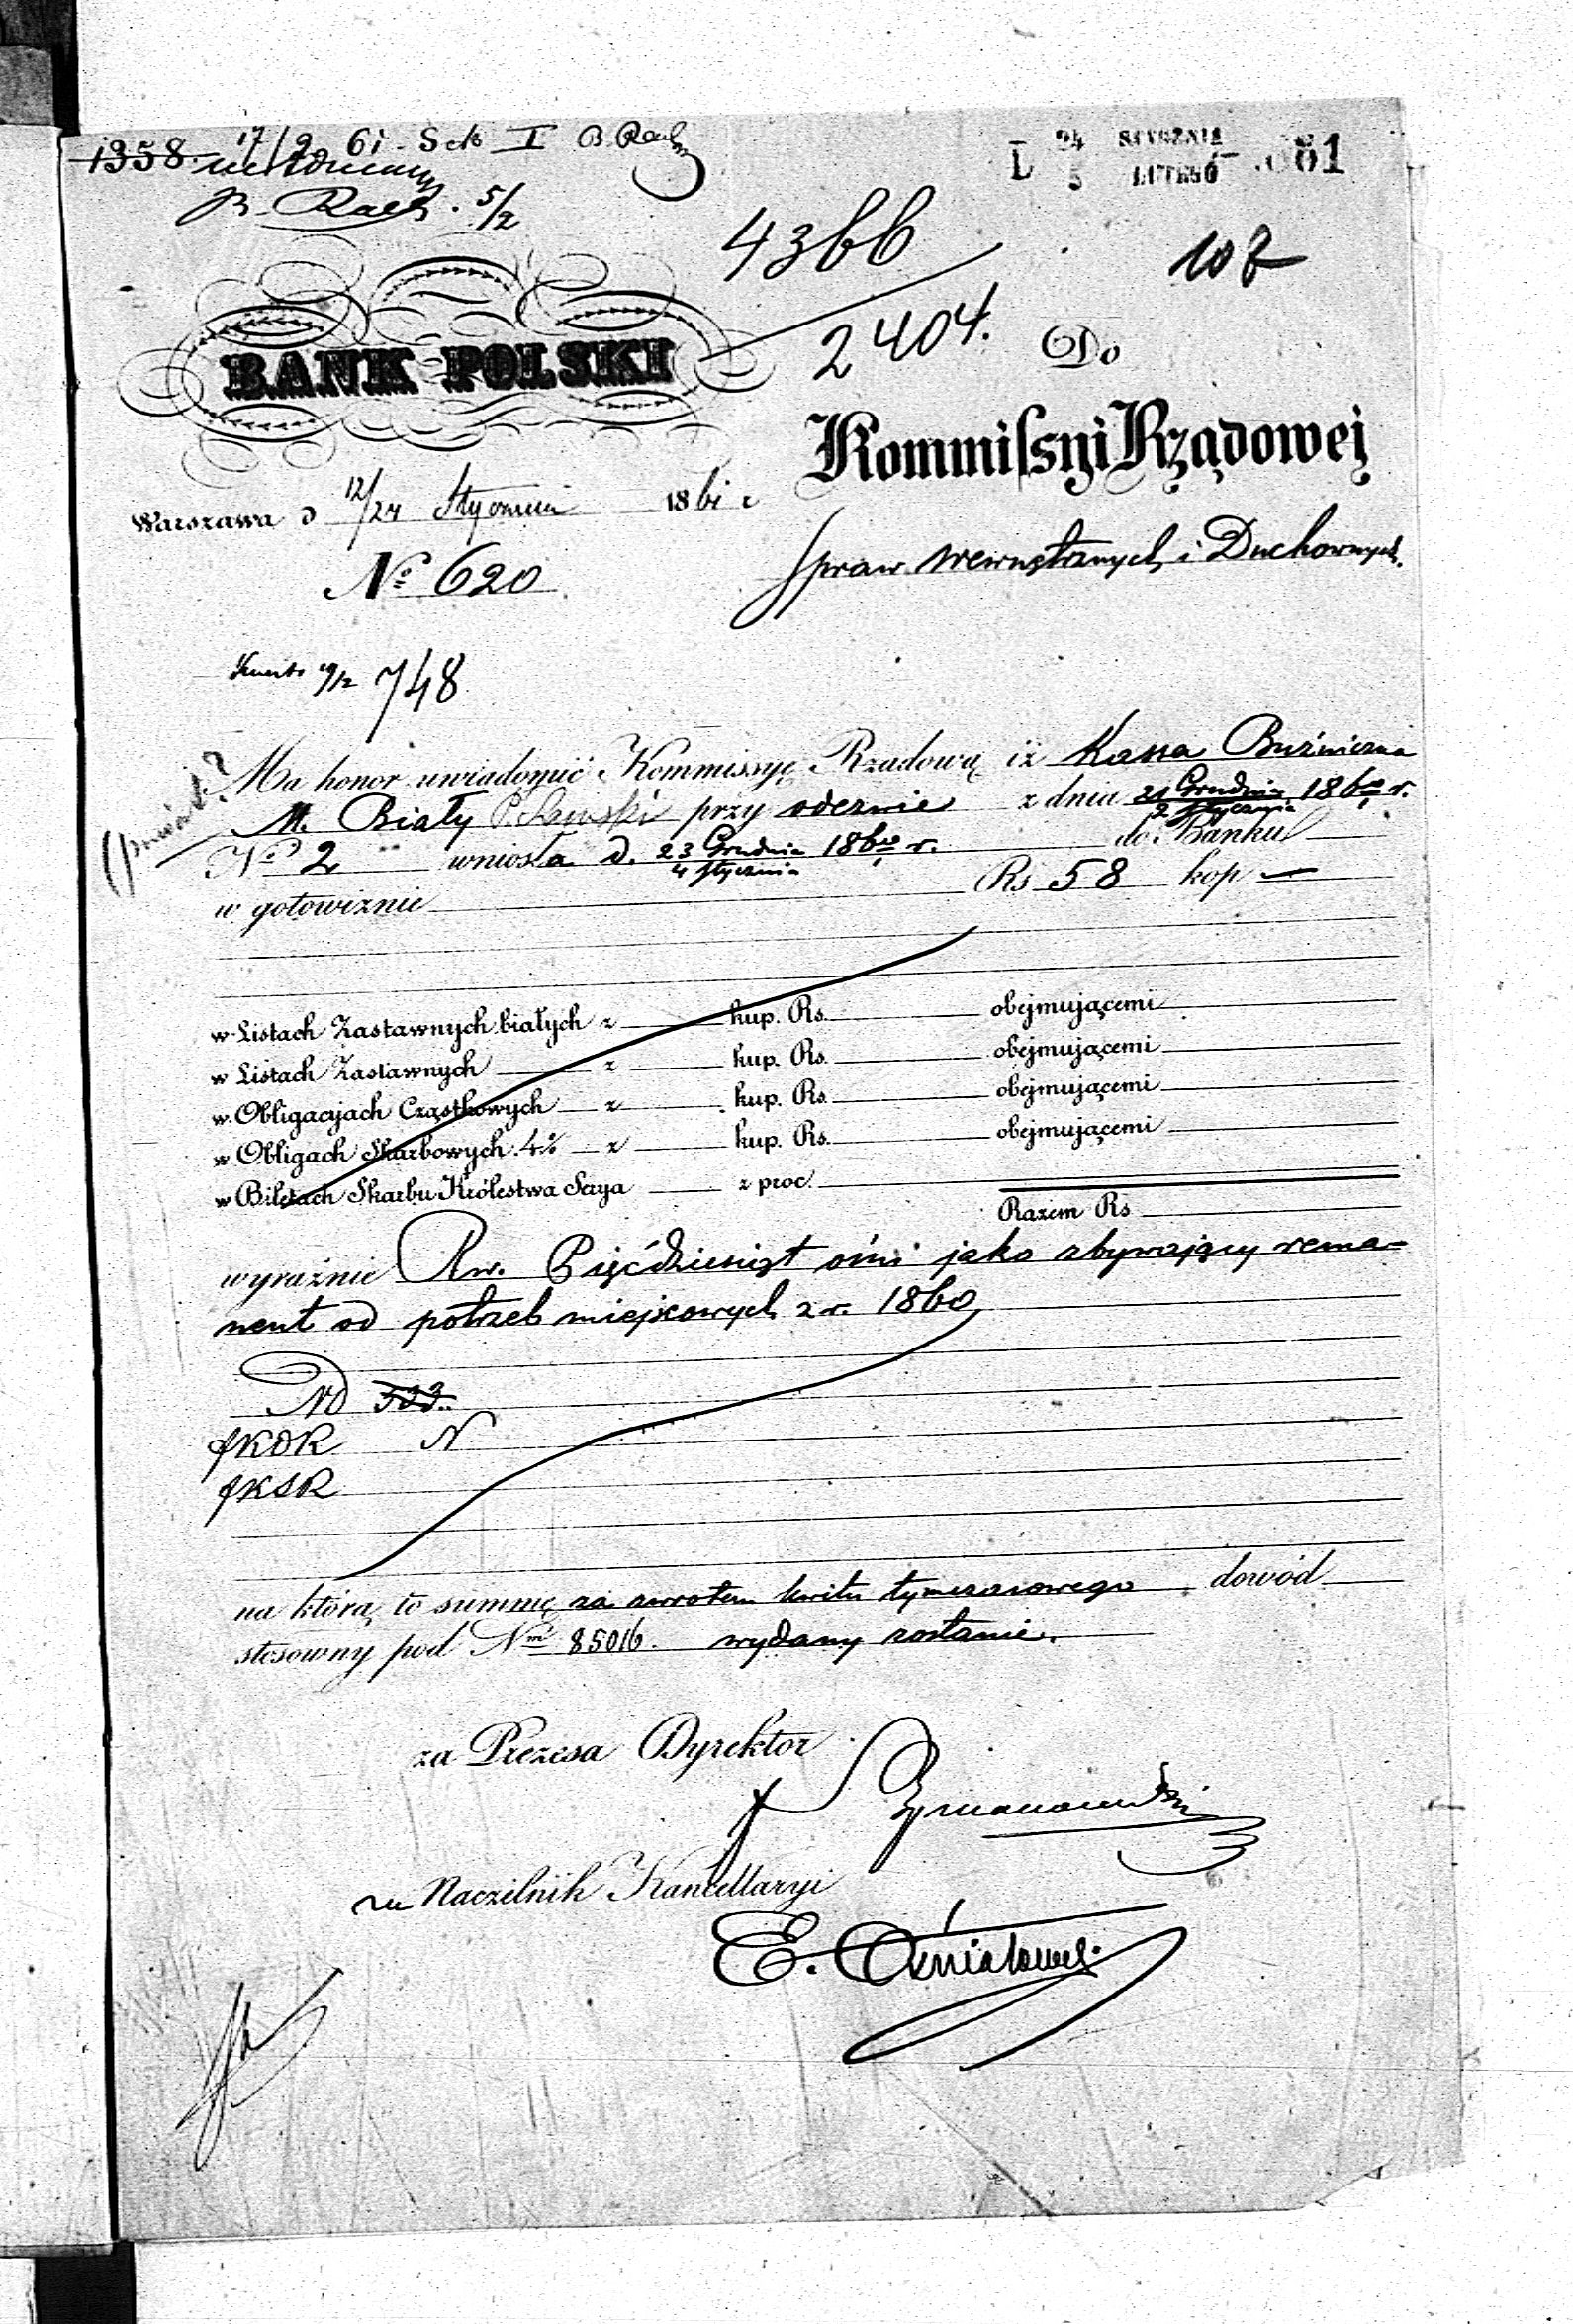 1358. 17/2 61 Sek I B. Rach
B. Rach. 5/2
L 24 STYCZNIA
5 LUTEGO 1861
4366
2404.
108
BANK POLSKI
Do
Kommissyi Rządowej
Spraw Wewnętrznych i Duchownych.
Warszawa d 12/24 Stycznia 1861 r
No 620
748
Ma honor uwiadomić Kommissyę Rządową iż Kassa Bużniczna
(powiat?
M. Biały przy odezwie z dnia 21 Grudnia / 2 Stycznia 1860/1 r.
No 2 wniosła d. 23 Grudnia / 4 Stycznia 1860/1 r. do Banku
w gotowiznie Rs 58 kop —
w Listach Zastawnych białych z kup. Rs. obejmującemi
w Listach Zastawnych z kup. Rs. obejmującemi
w Obligacyjach Cząstkowych z kup. Rs. obejmującemi
w Obligach Skarbowych 4% z kup. Rs. obejmującemi
w Biletach Skarbu Królestwa Serya z proc.
Razem Rs
wyraźnie Rs. Pięćdziesiąt ośm jako zbywający rema-
nent od potrzeb miejscowych z r. 1860
ND 533
fKDR N
fKSR
na którą to summę za zwrotem kwitu tymczasowego dowód
stosowny pod Nm 85016. wydany zostanie.
za Prezesa Dyrektor
Szymanowski
za Naczelnik Kancellaryi
E.